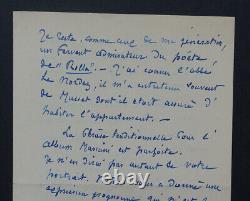 Je reste, comme ceux de ma génération,
un fervent admirateur du poète
de "Rolla". — J'ai connu l'abbé
Le Nordez, il m'a entretenu souvent
de Musset dont il était assuré d'
habiter l'appartement. —
La phrase traditionnelle pour l'
album Mariani est parfaite.
Je n'en dirai pas autant de votre
portrait. à Dianne une